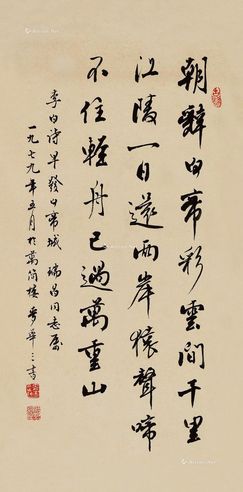 朝辭白帝彩雲間千里
江陵一日還兩岸猿聲啼
不住輕舟已過萬重山
李白詩早發白帝城 瑞昌同志屬
一九七九年五月於萬簡樓 費平三書